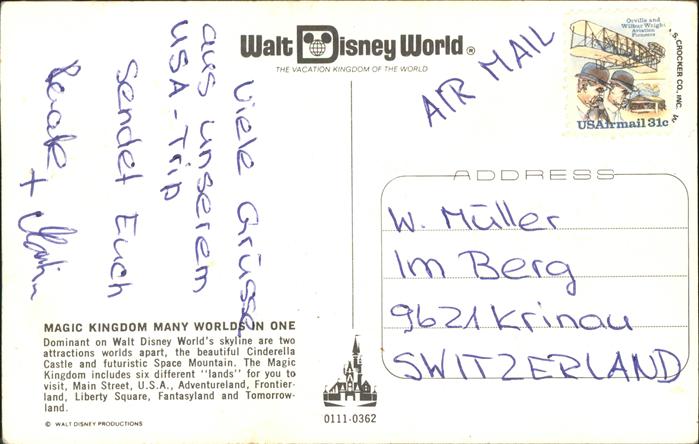 Walt Disney World®
THE VACATION KINGDOM OF THE WORLD
AIR MAIL
Orville and
Wilbur Wright
Aviation
Pioneers
USAirmail 31c
S CROCKER CO., INC.
Viele Grüsse
aus unserem
USA-Trip
sendet Euch
+ Martin
ADDRESS
W. Müller
Im Berg
9621 Krinau
SWITZERLAND
MAGIC KINGDOM MANY WORLDS IN ONE
Dominant on Walt Disney World's skyline are two
attractions worlds apart, the beautiful Cinderella
Castle and futuristic Space Mountain. The Magic
Kingdom includes six different "lands" for you to
visit, Main Street, U.S.A., Adventureland, Frontier-
land, Liberty Square, Fantasyland and Tomorrow-
land.
© WALT DISNEY PRODUCTIONS
0111-0362